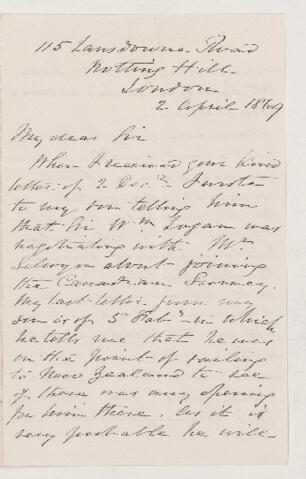 115 Lansdowne Road
Notting Hill
London
2 April 1869
My dear Sir
When I received your kind
letter of 2 Decr I wrote
to my son telling him
that Sir Wm Logan was
negotiating with Mr
Selwyn about joining
the Canadian Survey.
My last letter from my
son is of 5 Feby in which
he tells me that he was
on the point of
to New Zealand to see
if there was any opening
for him there. As it is
very probable he will